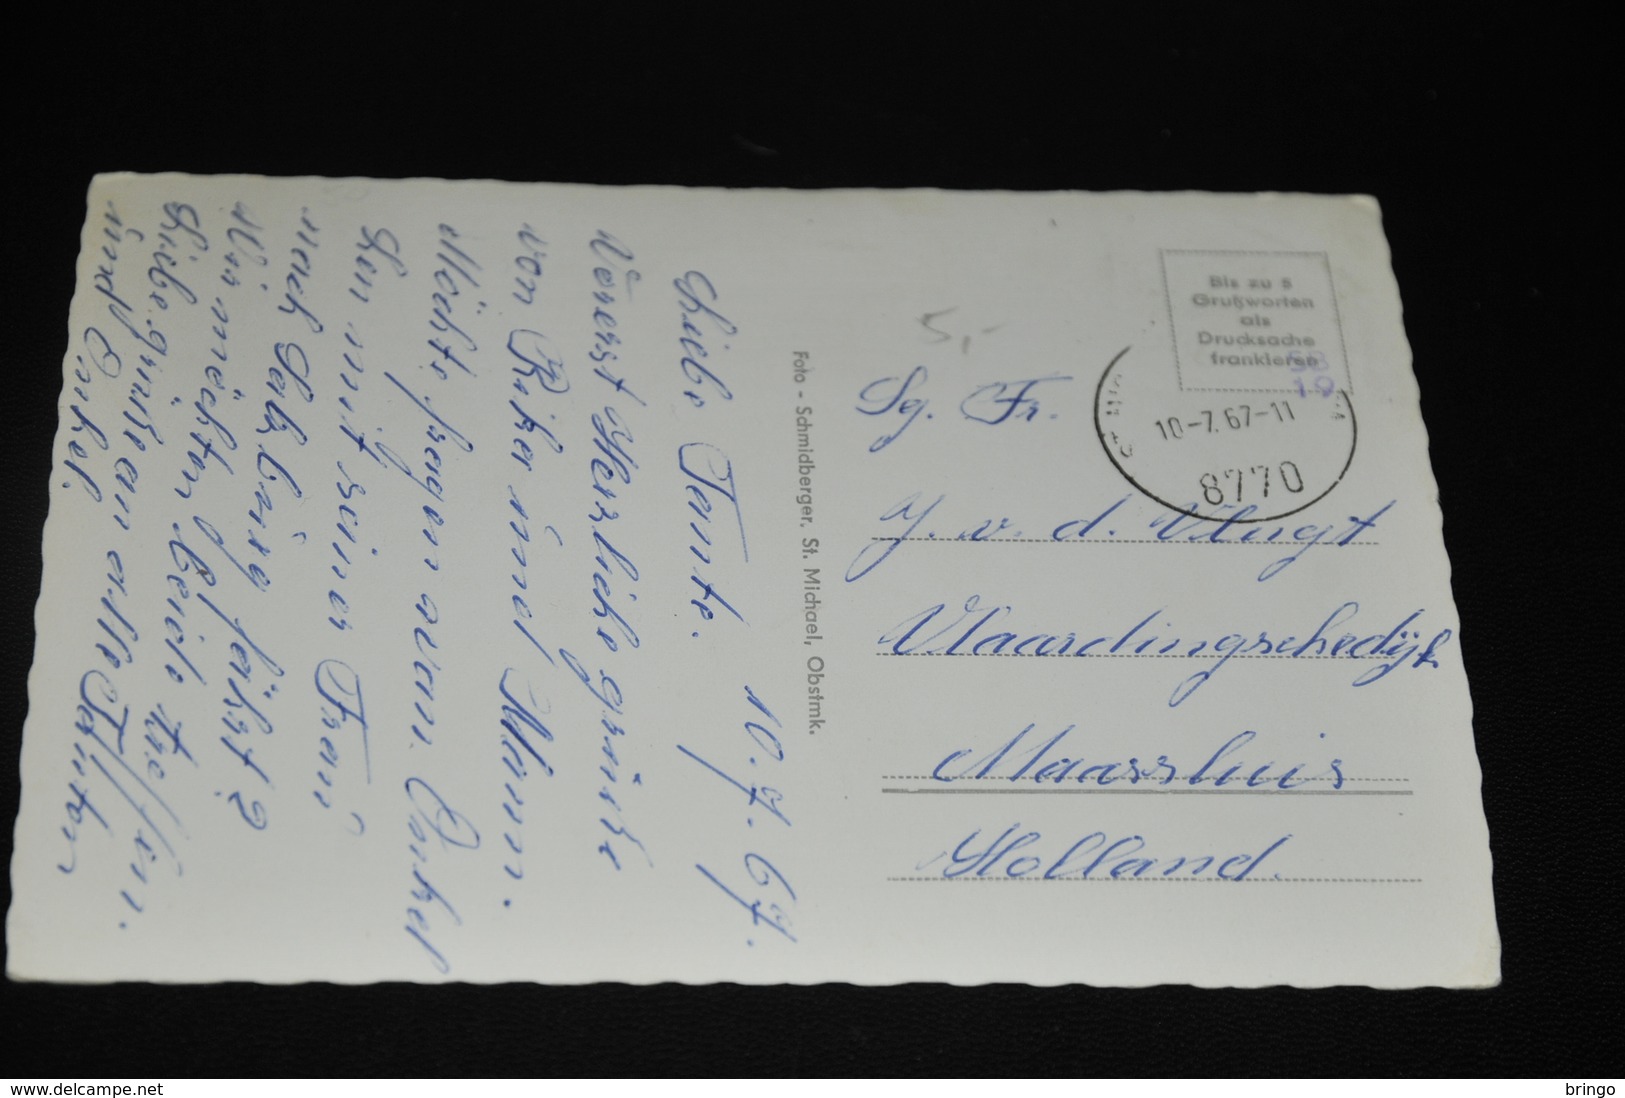 Liebe Tante. 10.7.67.
Vorerst Herzliche grüße
von Rika und Mann.
Möchte fragen wan Onkel
Len mit seiner Frau
nach Salzburg fährt?
Wir möchten beide treffen.
Liebe grüße an alle Tanten
und Onkel.
Foto - Schmidberger, St. Michael, Obstmk.
Bis zu 5
Grußworten
als
Drucksache
frankieren
10-7.67-11
8770
5,-
Sg. Fr.
J. v. d. Vlugt
Vlaardingschedijk
Maassluis
Holland.
bringo